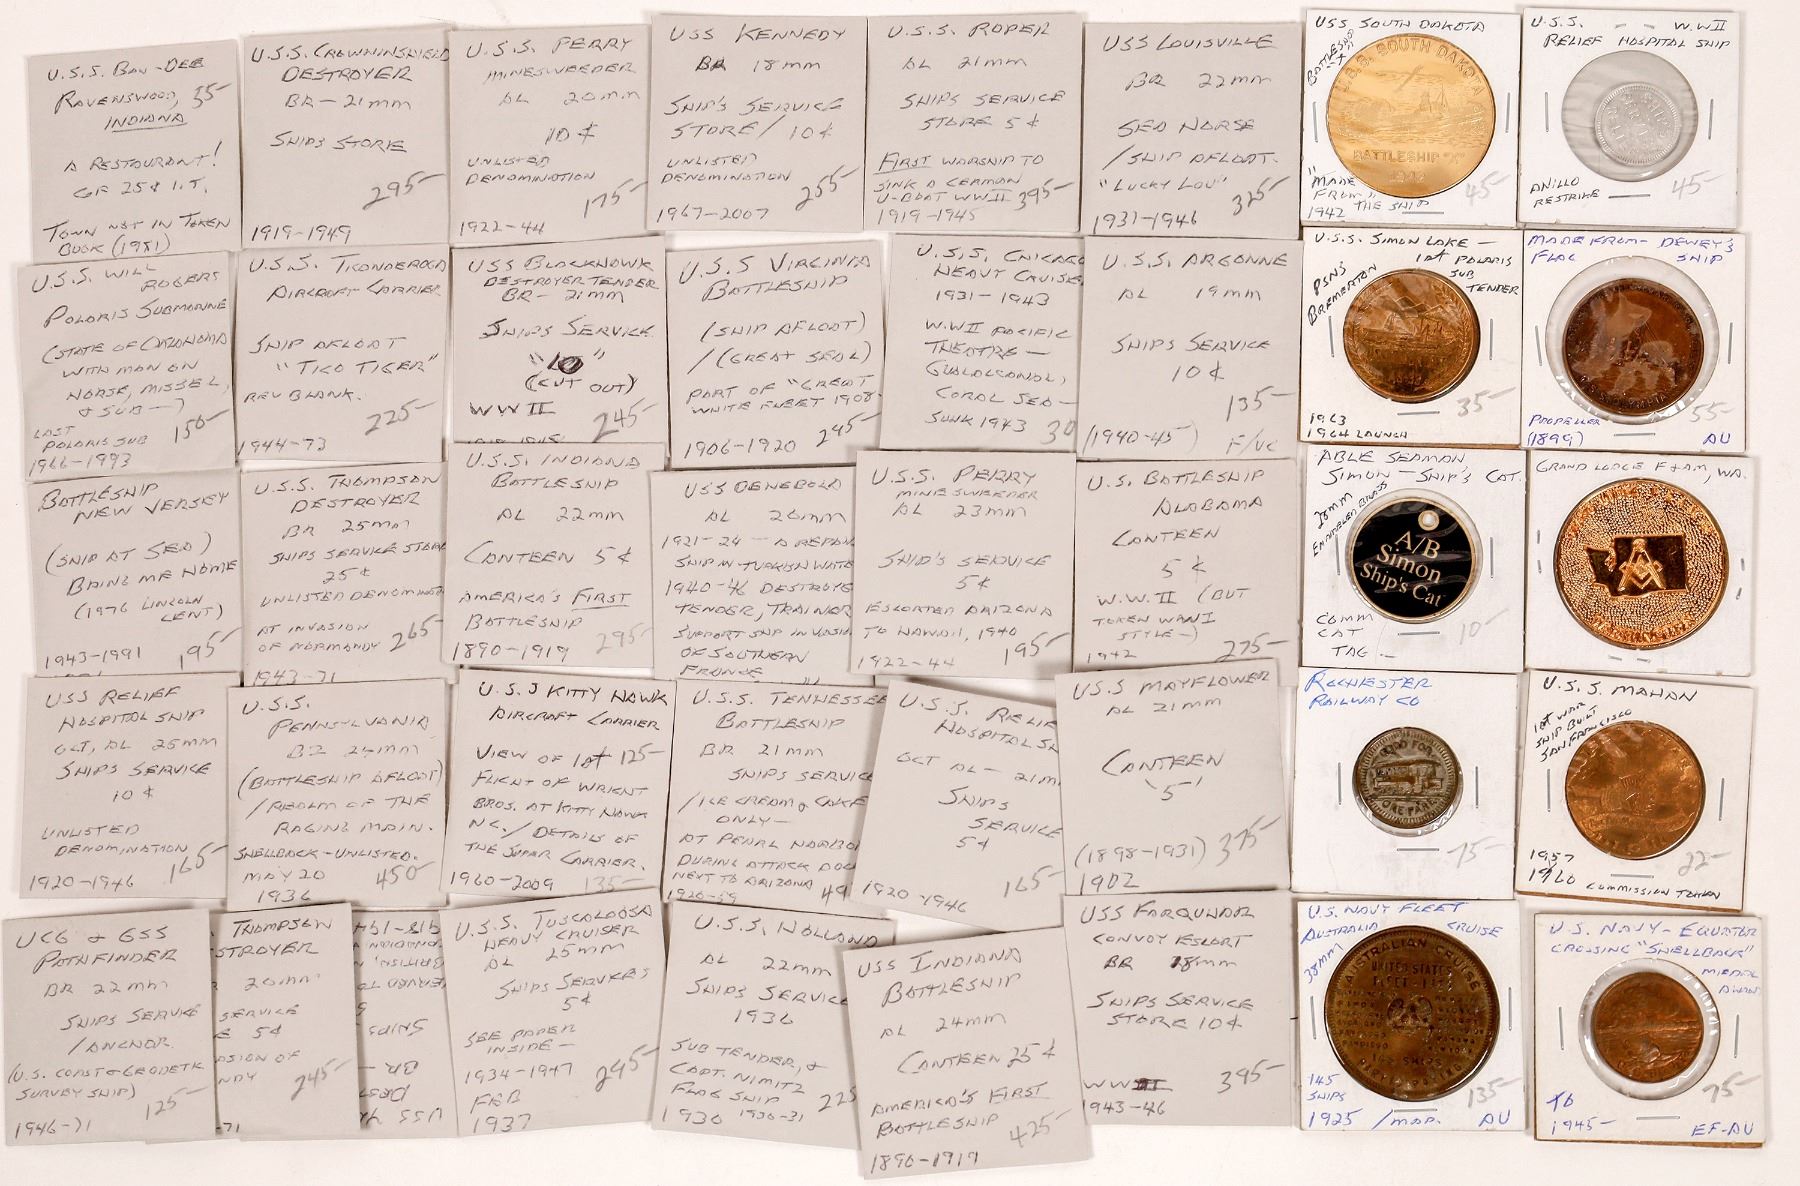 U.S.S. BOW-DEE
RAVENSWOOD, 35-
INDIANA
A RESTAURANT!
GF 25¢ I.T.
TOWN NOT IN TOKEN
BOOK (1981)
U.S.S. CROWNINSHIELD
DESTROYER
BR - 21mm
SHIPS STORE
295-
1919-1949
U.S.S. PERRY
MINESWEEPER
AL 20mm
10¢
UNLISTED
DENOMINATION
175-
1922-44
USS KENNEDY
BR 18mm
SHIP'S SERVICE
STORE/10¢
UNLISTED
DENOMINATION
255-
1967-2007
U.S.S. ROPER
AL 21mm
SHIPS SERVICE
STORE 5¢
FIRST WARSHIP TO
SINK A GERMAN
U-BOAT WWII 395-
1919-1945
USS LOUISVILLE
BR 22mm
SEA HORSE
/SHIP AFLOAT.
"LUCKY LOU"
325-
1931-1946
USS SOUTH DAKOTA
BATTLESHIP
"X"
U.S.S. SOUTH DAKOTA
BATTLESHIP "X"
1942
"MADE
FROM"
THE SHIP
1942
45-
U.S.S. -- W.W.II
RELIEF HOSPITAL SHIP
ANILLO
RESTRIKE
45-
U.S.S. WILL
ROGERS
POLARIS SUBMARINE
(STATE OF OKLAHOMA
WITH MAN ON
HORSE, MISSEL,
& SUB-)
LAST
POLARIS SUB 150-
1966-1993
U.S.S. TICONDEROGA
AIRCRAFT CARRIER
SHIP AFLOAT
"TICO TIGER"
REV BLANK.
225-
1944-73
USS BLACKHAWK
DESTROYER TENDER
BR - 21mm
SHIPS SERVICE
"10"
(CUT OUT)
WWII 245-
U.S.S VIRGINIA
BATTLESHIP
(SHIP AFLOAT)
/(GREAT SEAL)
PART OF "GREAT
WHITE FLEET 1908-
245-
1906-1920
U.S.S. CHICAGO
HEAVY CRUISE
1931-1943
W.WII PACIFIC
THEATRE -
GUALACONAL,
CORAL SEA -
SUNK 1943 30
U.S.S. ARGONNE
AL 19mm
SHIPS SERVICE
10¢
135-
(1940-45) F/VG
U.S.S. SIMON LAKE -
1st POLARIS
SUB
TENDER
PSNS
BREMERTON
1963
1964 LAUNCH
35-
MADE FROM- DEWEY'S
FLAG SHIP
PROPELLER
(1899)
55-
AU
BATTLESHIP
NEW JERSEY
(SHIP AT SEA)
BRING ME HOME
(1976 LINCOLN
CENT)
1943-1991 195-
U.S.S. THOMPSON
DESTROYER
BR 25mm
SHIPS SERVICE STORE
25¢
UNLISTED DENOMINATI
AT INVASION
OF NORMANDY 265-
1943-71
U.S.S. INDIANA
BATTLESHIP
AL 22mm
CANTEEN 5¢
AMERICA'S FIRST
BATTLESHIP
1890-1919 295-
USS DENEBOLA
AL 26mm
1921-24 - A REPAIR
SHIP IN TURKISH WATE
1940-46 DESTROYE
TENDER, TRAINER
SUPPORT SHIP INVASI
OF SOUTHERN
FRANCE
U.S.S. PERRY
MINE SWEEPER
AL 23mm
SHIP'S SERVICE
5¢
ESCORTED ARIZONA
TO HAWAII, 1940
195-
1922-44
U.S. BATTLESHIP
ALABAMA
CANTEEN
5¢
W.W.II (BUT
TOKEN WWI
STYLE-)
1942 275-
ABLE SEAMAN
SIMON - SHIP'S CAT.
38mm
ENAMELED BRASS
A/B
Simon
Ship's Cat
COMM
CAT
TAG -
10-
GRAND LODGE F+AM, WA.
USS RELIEF
HOSPITAL SHIP
OCT, AL 25mm
SHIPS SERVICE
10¢
UNLISTED
DENOMINATION
165-
1920-1946
U.S.S.
PENNSYLVANIA
(BATTLESHIP AFLOAT)
/REALM OF THE
RAGING MAIN.
SHELLBACK-UNLISTED.
MAY 20 450-
1936
U.S.S KITTY HAWK
AIRCRAFT CARRIER
VIEW OF 1st 125-
FLIGHT OF WRIGHT
BROS. AT KITTY HAWK
NC./DETAILS OF
THE SUPER CARRIER.
1960-2009 135-
U.S.S. TENNESSEE
BATTLESHIP
BR 21mm
SHIPS SERVICE
/ICE CREAM & CAKE
ONLY -
AT PEARL HARBO
DURING ATTACK DOC
NEXT TO ARIZONA
1920-59 49
U.S.S. RELIE
HOSPITAL SH
OCT AL - 21m
SHIPS
SERVICE
5¢
165-
1920-1946
U.S.S MAYFLOWER
AL 21mm
CANTEEN
'5'
(1898-1931) 375-
1902
ROCHESTER
RAILWAY CO
GOOD FOR
ONE FARE
75-
U.S.S. MAHAN
1st WAR
SHIP BUILT
SAN FRANCISCO
1957
1960
22-
COMMISSION TOKEN
UCG & GSS
PATHFINDER
BR 22mm
SHIPS SERVICE
/ANCHOR.
(U.S. COAST & GEODETIC
SURVEY SHIP)
125-
1946-71
THOMPSON
STROYER
20mm
SERVICE
E 5¢
ASION OF
NDY 245-
-71
U.S.S. TUSCALOOSA
HEAVY CRUISER
AL 25mm
SHIPS SERVICES
5¢
SEE PAPER
INSIDE -
1934-1947
FEB
1937
295-
U.S.S. HOLLAND
AL 22mm
SHIPS SERVICE
1936
SUB TENDER, &
CAPT. NIMITZ
FLAG SHIP 225
1930 1930-31
USS INDIANA
BATTLESHIP
AL 24mm
CANTEEN 25¢
AMERICA'S FIRST
BATTLESHIP
425-
1890-1919
USS FARQUHAR
CONVOY ESCORT
BR 18mm
SHIPS SERVICE
STORE 10¢
WWII 395-
1943-46
U.S. NAVY FLEET
AUSTRALIA CRUISE
38mm
AUSTRALIAN CRUISE
UNITED STATES
FLEET-1925
145 SHIPS
145
SHIPS
135-
1925 /MAP. AU
U.S. NAVY - EQUATOR
CROSSING "SHELLBACK"
MEDAL
75-
1945-
EF-AU